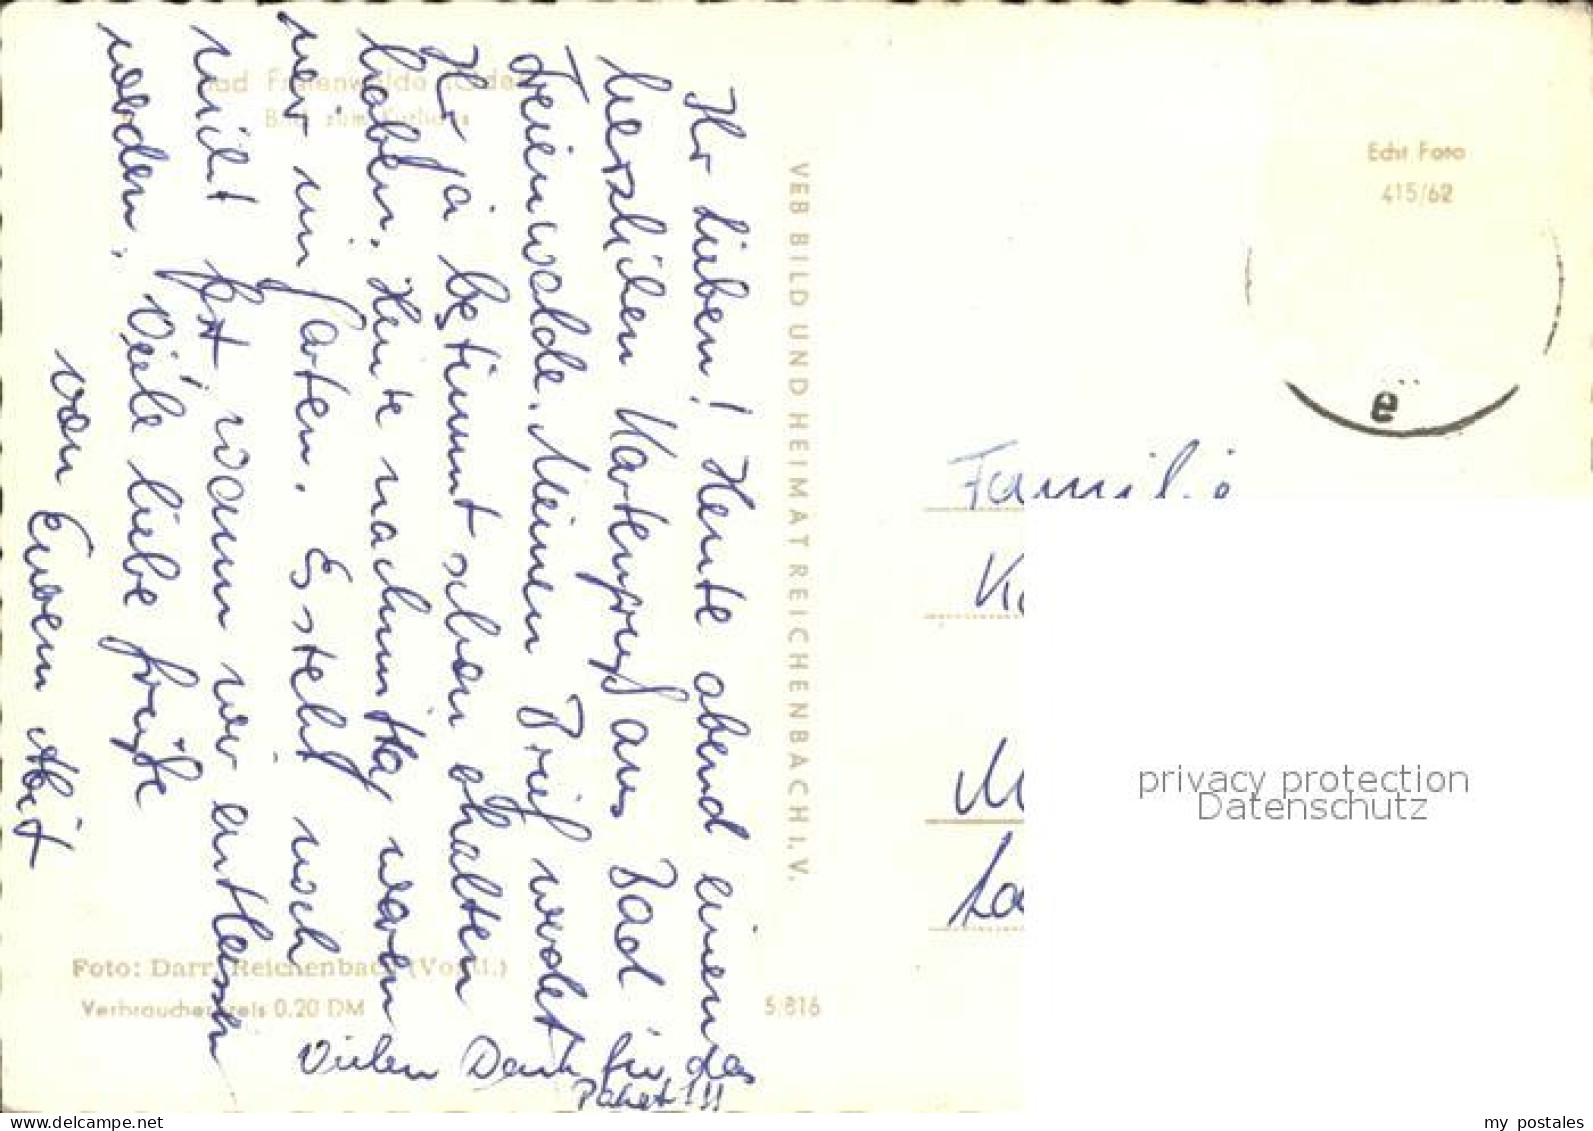 Bad Freienwalde (Oder)
Blick zum Kurhaus
Ihr Lieben! Heute abend einen
herzlichen Kartengruß aus Bad
Freienwalde. Meinen Brief werdet
Ihr ja bestimmt schon erhalten
haben. Heute nachmittag waren
wir im Garten. Es steht noch
nicht fest wann wir entlassen
werden. Viele liebe Grüße
von Eurem
Vielen Dank für das
Paket!!!
VEB BILD UND HEIMAT REICHENBACH I. V.
Foto: Darr, Reichenbach (Vogtl.)
Verbraucherpreis 0.20 DM
5/816
Echt Foto
415/62
e
Familie
K
M
La
privacy protection
Datenschutz
ebay-ansichtskartenlotos.net
my postales